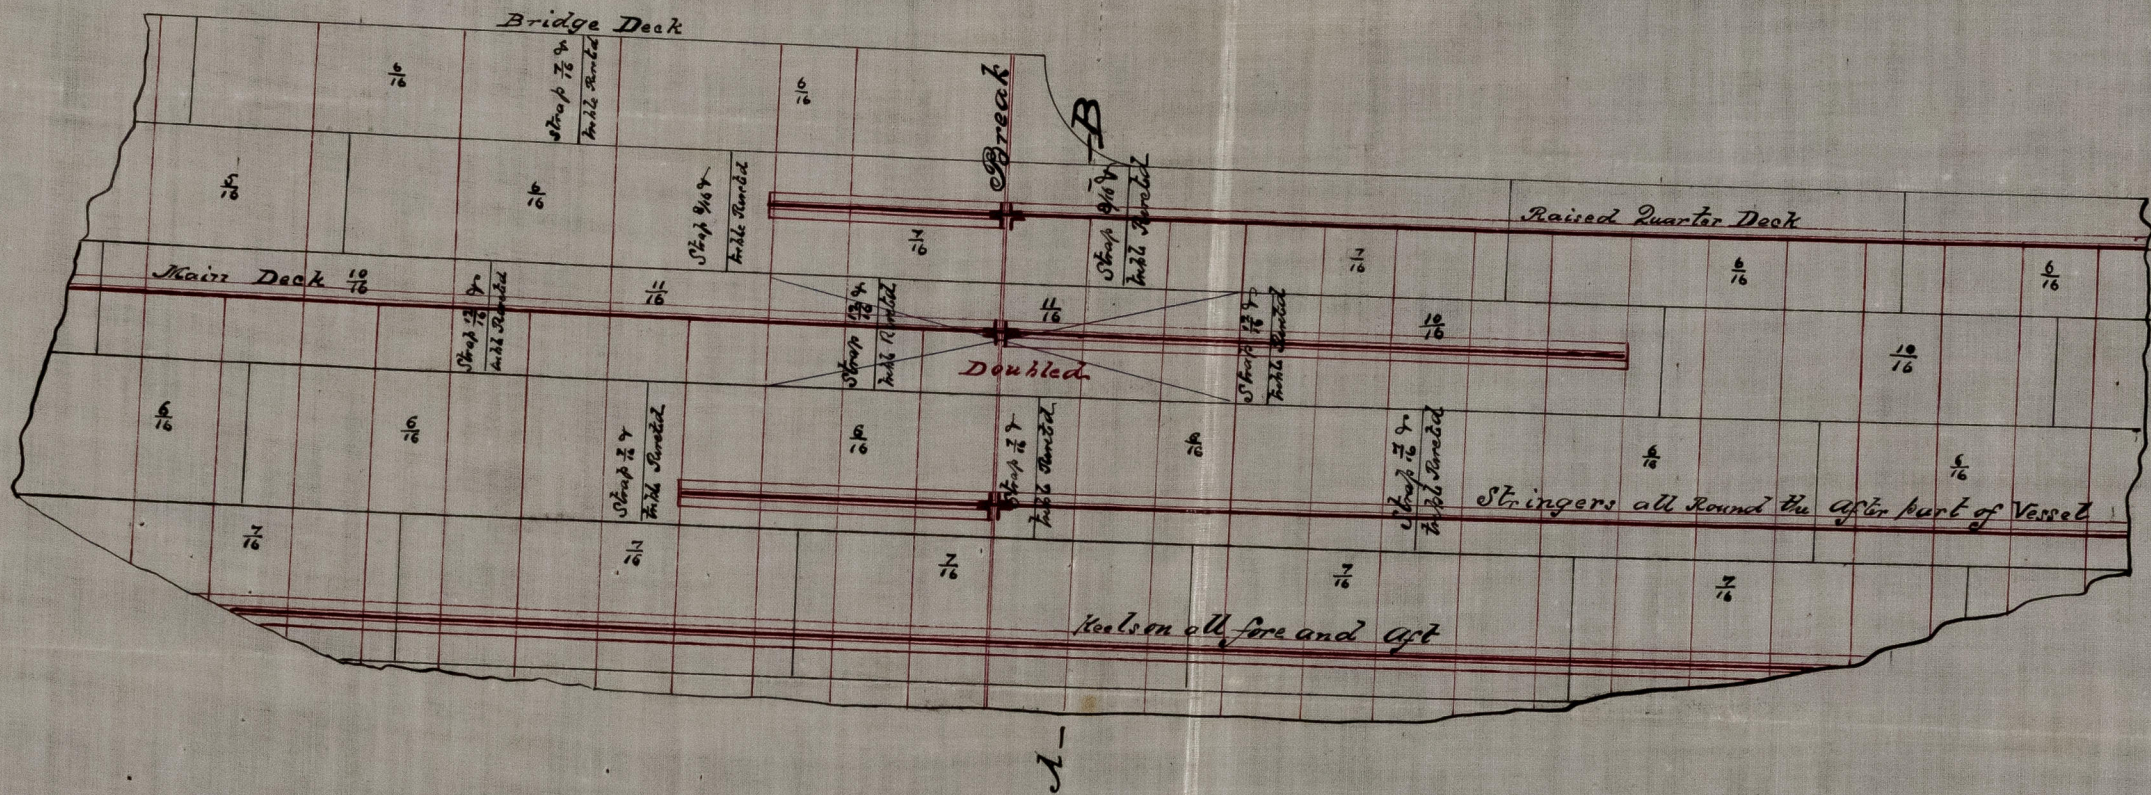 Bridge Deck
6/16
Strap 7/16 &
treble Riveted
6/16
Break
B
6/16
6/16
Strap 8/16 &
treble Riveted
7/16
Strap 8/16 &
treble Riveted
Raised Quarter Deck
7/16
6/16
6/16
Main Deck 10/16
Strap 12/16 &
treble Riveted
11/16
Strap 12/16 &
treble Riveted
11/16
Doubled
Strap 12/16 &
treble Riveted
10/16
10/16
6/16
6/16
Strap 7/16 &
treble Riveted
6/16
Strap 7/16 &
treble Riveted
6/16
Strap 7/16 &
treble Riveted
6/16
6/16
Stringers all Round the after part of Vessel
7/16
7/16
7/16
7/16
7/16
Keelson all fore and aft
A